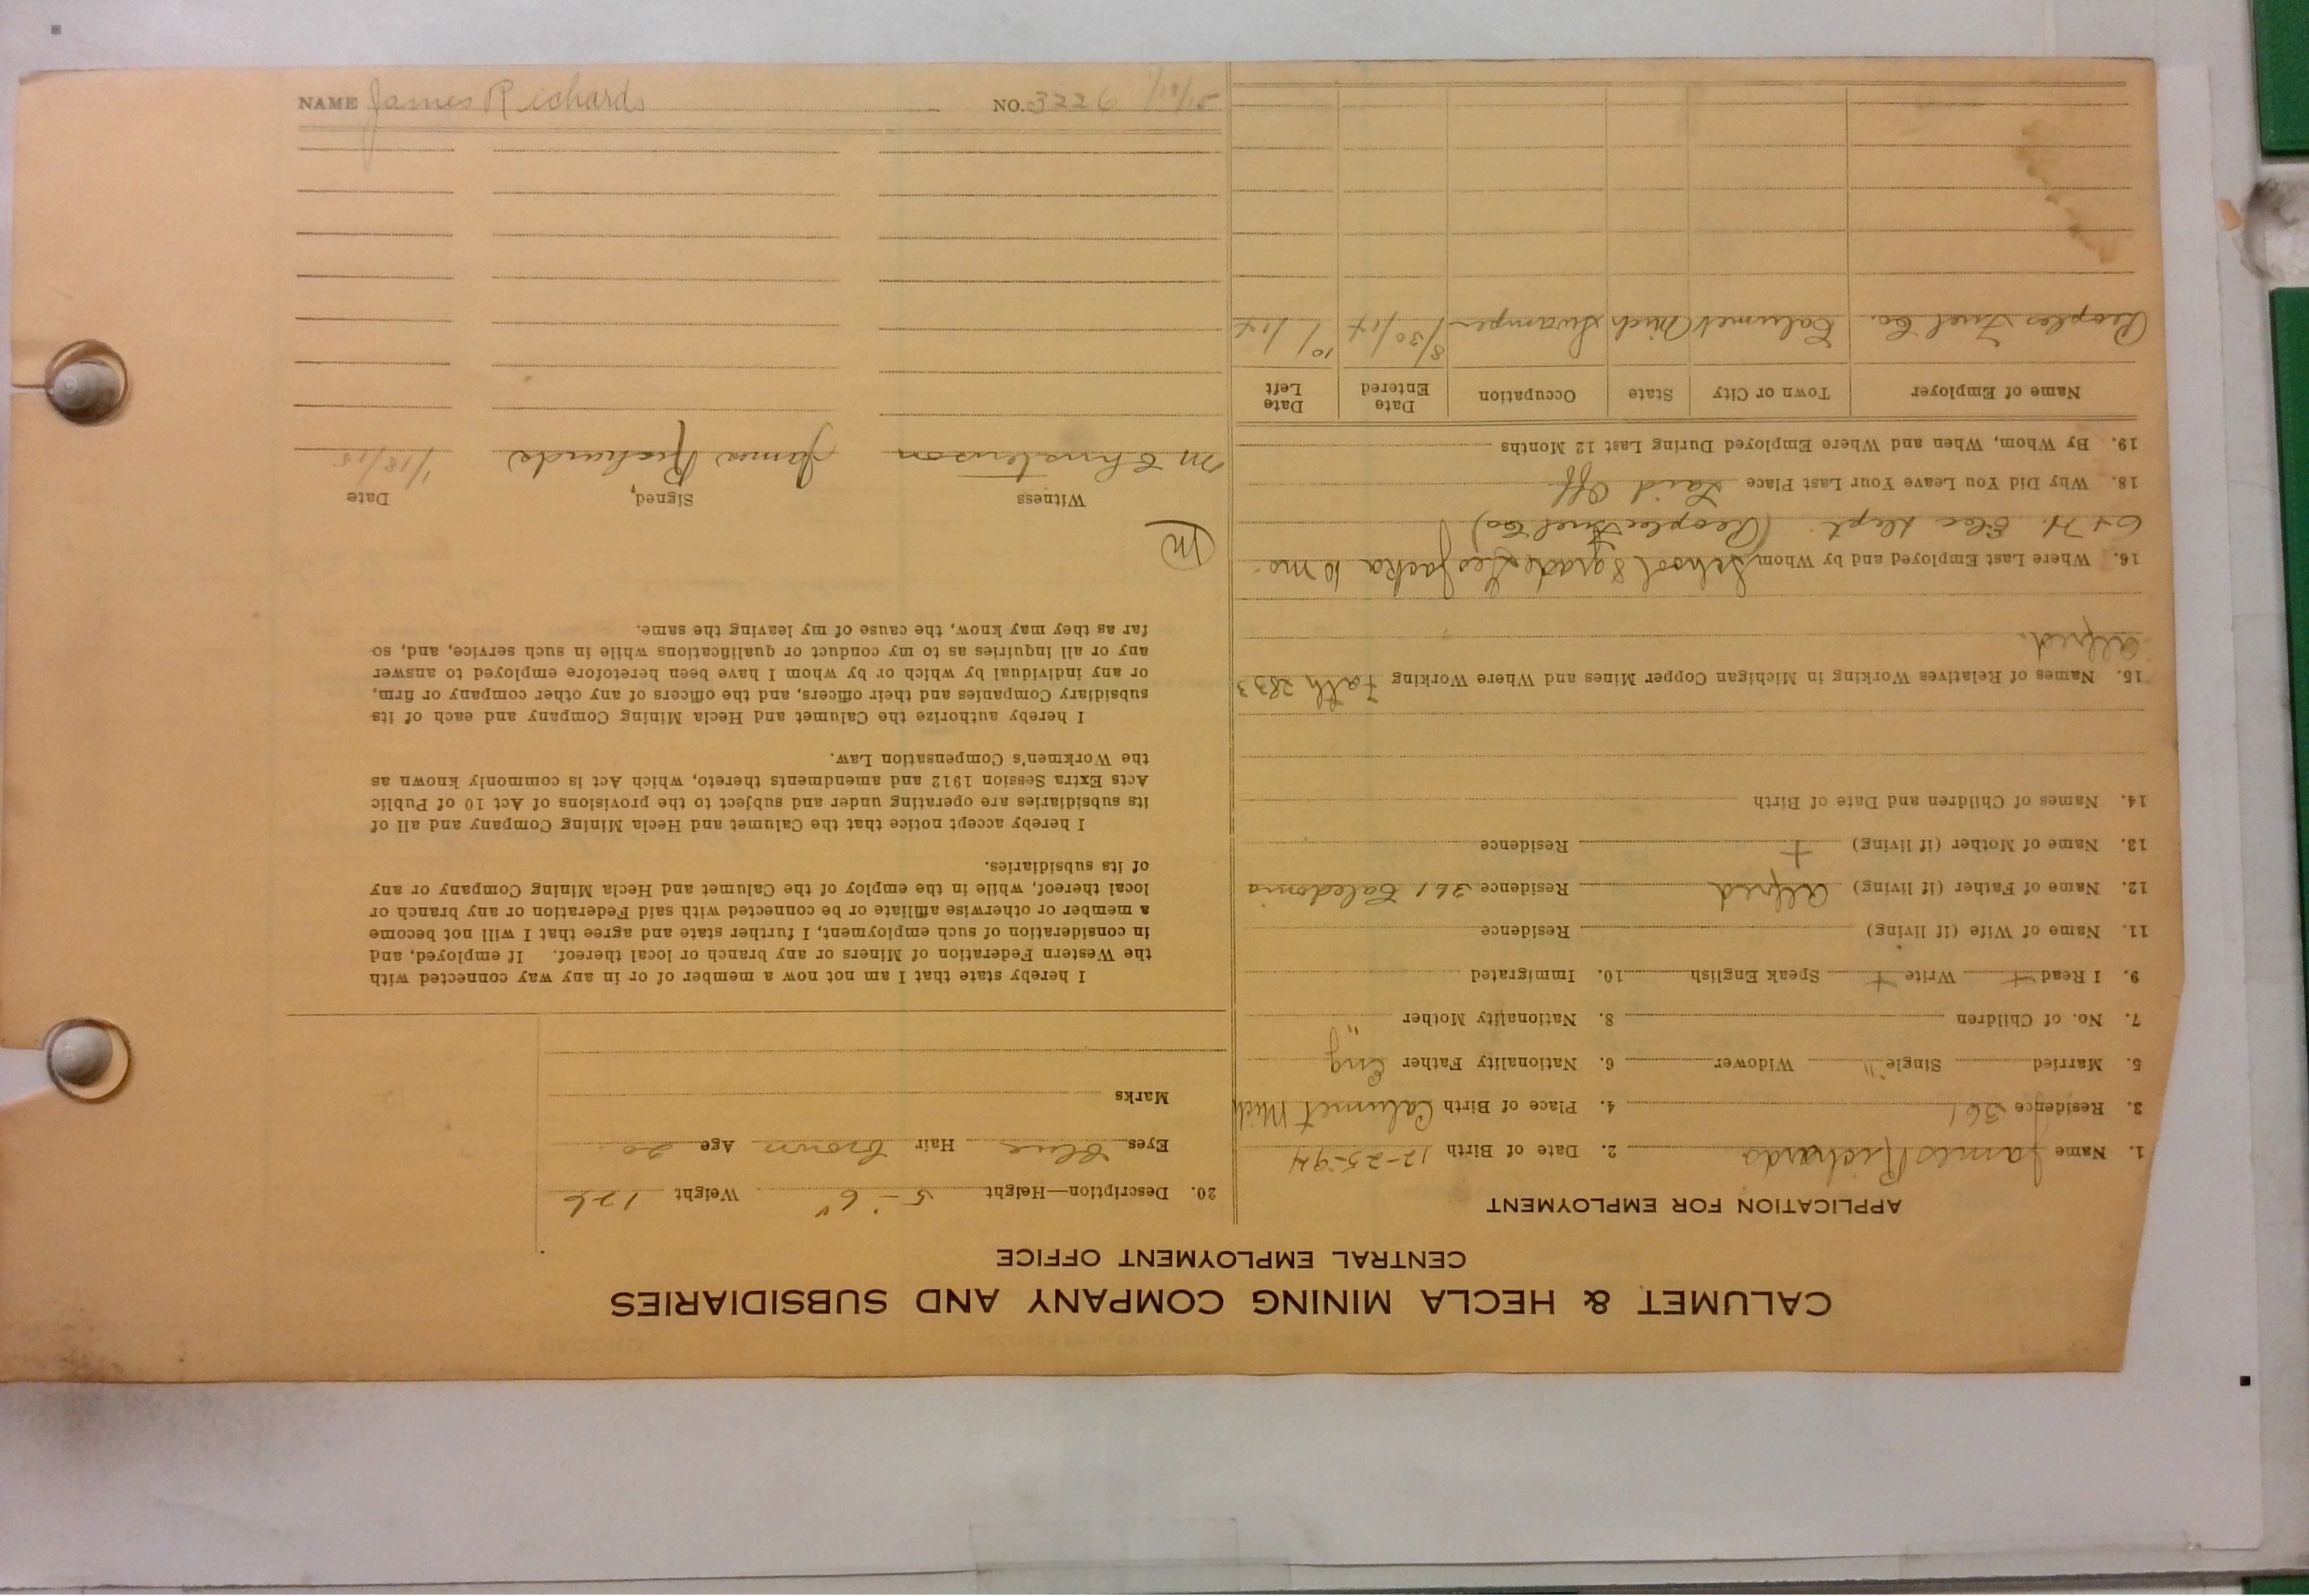 NAME James Richards NO. 3226 1/19/15
CALUMET & HECLA MINING COMPANY AND SUBSIDIARIES
CENTRAL EMPLOYMENT OFFICE
APPLICATION FOR EMPLOYMENT
1. Name James Richards 2. Date of Birth 12-25-94
3. Residence 361 4. Place of Birth Calumet Mich
5. Married Single " Widower 6. Nationality Father Eng
7. No. of Children 8. Nationality Mother "
9. I Read + Write + Speak English 10. Immigrated
11. Name of Wife (if living) Residence
12. Name of Father (if living) Alfred Residence 361 Caledonia
13. Name of Mother (if living) + Residence
14. Names of Children and Date of Birth
15. Names of Relatives Working in Michigan Copper Mines and Where Working Fath 2833
Alfred.
16. Where Last Employed and by Whom School 8 grade Geo Jacka 10 mo.
C+H. Elec Dept. (Peoples Fuel Co)
18. Why Did You Leave Your Last Place Laid Off
19. By Whom, When and Where Employed During Last 12 Months
Name of Employer Town or City State Occupation Date Entered Date Left
Peoples Fuel Co. Calumet Mich Swamper 8/30/14 10/1/14
20. Description—Height 5-6" Weight 126
Eyes Blue Hair Brown Age 20
Marks
I hereby state that I am not now a member of or in any way connected with
the Western Federation of Miners or any branch or local thereof. If employed, and
in consideration of such employment, I further state and agree that I will not become
a member or otherwise affiliate or be connected with said Federation or any branch or
local thereof, while in the employ of the Calumet and Hecla Mining Company or any
of its subsidiaries.
I hereby accept notice that the Calumet and Hecla Mining Company and all of
its subsidiaries are operating under and subject to the provisions of Act 10 of Public
Acts Extra Session 1912 and amendments thereto, which Act is commonly known as
the Workmen's Compensation Law.
I hereby authorize the Calumet and Hecla Mining Company and each of its
subsidiary Companies and their officers, and the officers of any other company or firm,
or any individual by which or by whom I have been heretofore employed to answer
any or all inquiries as to my conduct or qualifications while in such service, and, so
far as they may know, the cause of my leaving the same.
M
Witness Signed, Date
M Christenson James Richards 1/18/15